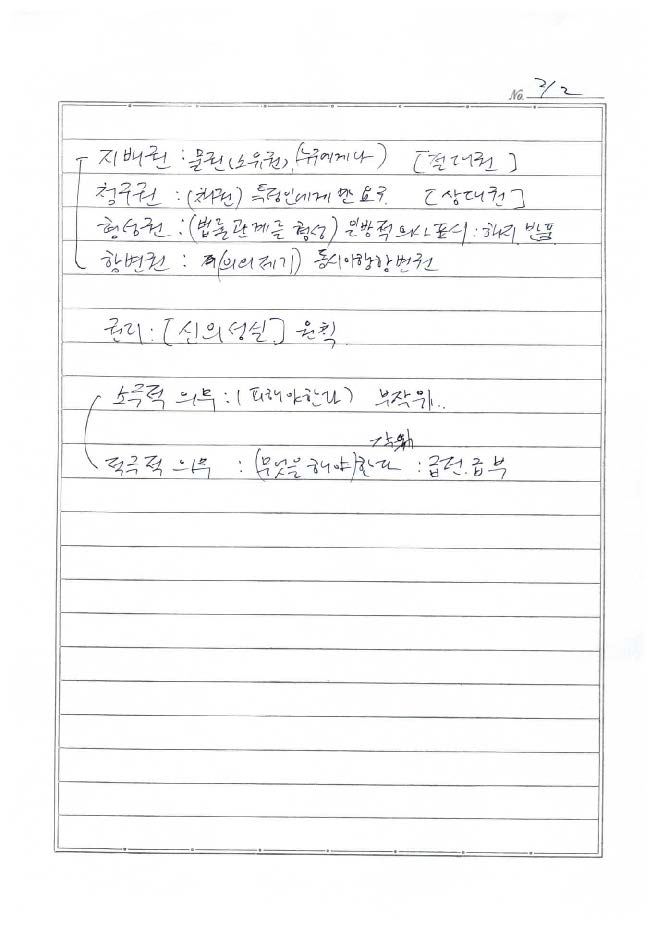 No. 2/2
지배권 : 물권(소유권), (누구에게나) [절대권]
청구권 : (채권) 특정인에게만 요구. [상대권]
형성권 : (법률관계를 형성) 일방적 의사표시 : 해지,
항변권 : (이의제기) 동시이행항변권
권리 : [신의성실] 원칙
소극적 의무 : (피해야한다) 부작위..
작위
적극적 의무 : (무엇을 해야)한다 : 급부